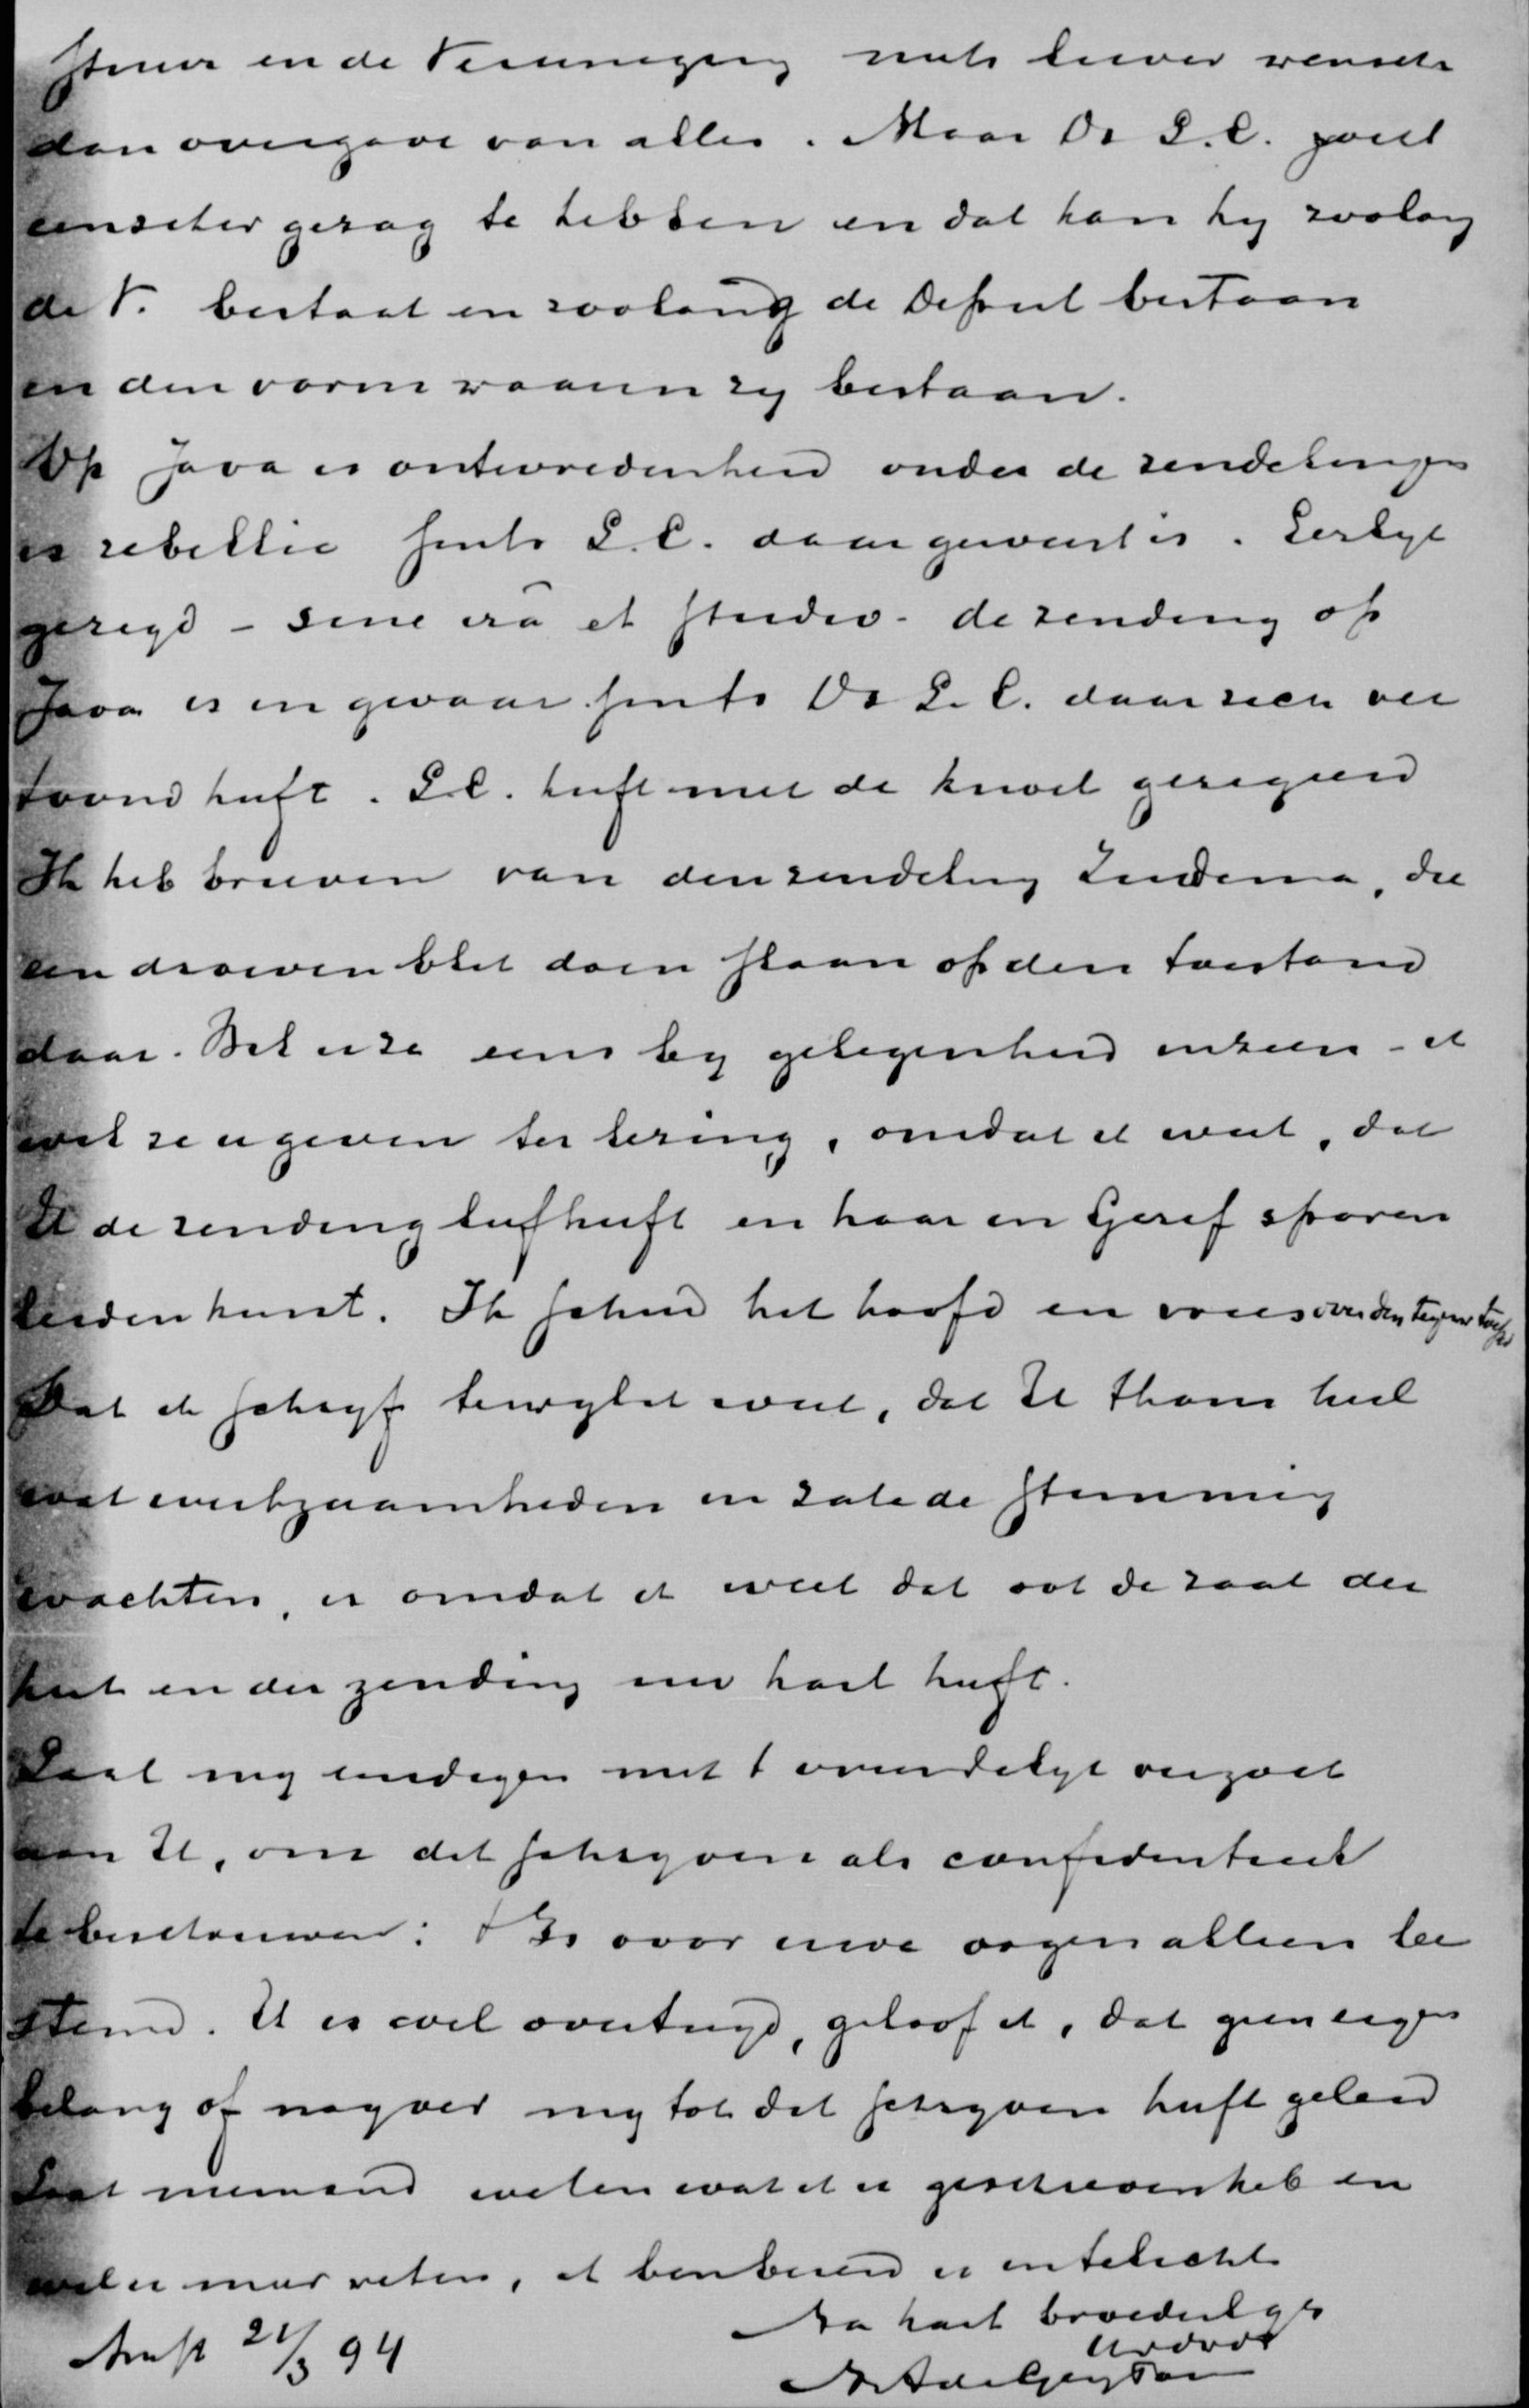 Steun en de Vereeniging niets liever wensch
dan overgave van alles. Maar Dr L.C. poeit
eenscher gezag te hebben en dat kan hy zoolang
de V. bestaat en zoolang de Deput bestaan
in den vorm waarin zy bestaan.
Op Java is ontevredenheid onder de zendelingen
is rebellie sints L.C. daar geweest is. Eerlyk
gezegd - sine ira et studio - de zending op
Java is in gevaar sints Dr L.C. daar zich ver
toond heeft. L.C. heeft met de knoet geregeerd
Ik heb brieven van den zendeling Zuidema, die
een droeven blik doen slaan op den toestand
daar. Wil u ze eens by gelegenheid inzien - ik
wil ze u geven ter lezing, omdat ik weet, dat
U de zending lief heeft en haar in Geref sporen
leiden kunt. Ik schud het hoofd en vrees voor den tegenw toest
Dat ik schryf terwyl ik weet, dat U thans heel
wat werkzaamheden en zalede stemming
wachten, is omdat ik weet dat ook de zaak der
kerk en der zending uw hart heeft.
Laat my eindigen met 't vriendelyk verzoek
aan U, om dit schryven als confidentieel
te beschouwen: 't Is voor uwe oogen alleen be
stemd. U is wel overtuigd, geloof ik, dat geen eigen
belang of nayver my tot dit schryven heeft geleid
Laat niemand weten wat ik u geschreven heb en
wil u meer weten, ik ben bereid u in te lichten
Na hart broederlyke
Amst 21/3 94